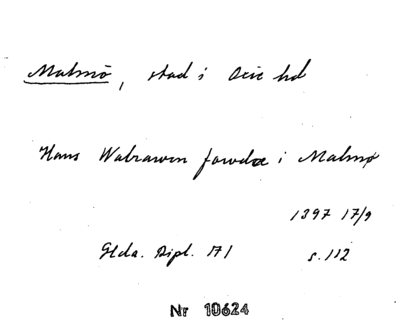 Malmö, stad i Oxie hd
Hans Walrawen fowdæ i Malmø
1397 17/9
Glda. Dipl. 171 s. 112
Nr 10624